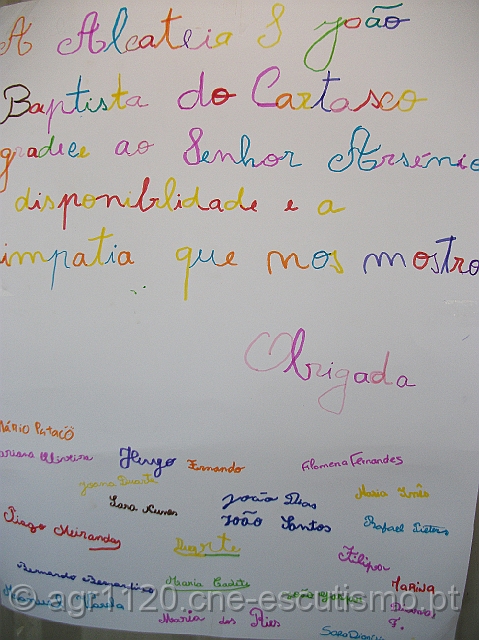 A Alcateia S João
Baptista do Cartaxo
gradece ao Senhor Arsénio
disponiblidade e a
impatia que nos mostro
Obrigada
Mário Pataçõ
ariana Oliveira Hugo Fernando Filomena Fernandes
Joana Duarte
Sara Nunes João Dias Maria Inês
Tiago Meirandas João Santos Rafael
Duarte Filipa
Bernardo Bernardino Maria Marina
Maria dos Ries
© agr1120.cne-escutismo.pt